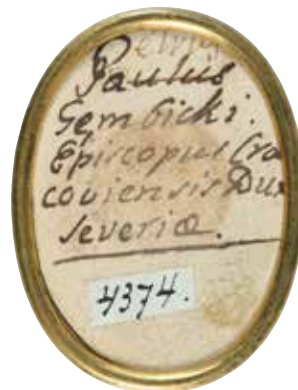 Petrus
Paulus
Gembicki.
Episcopus Cra
coviensis Dux
Severiæ.
4374.